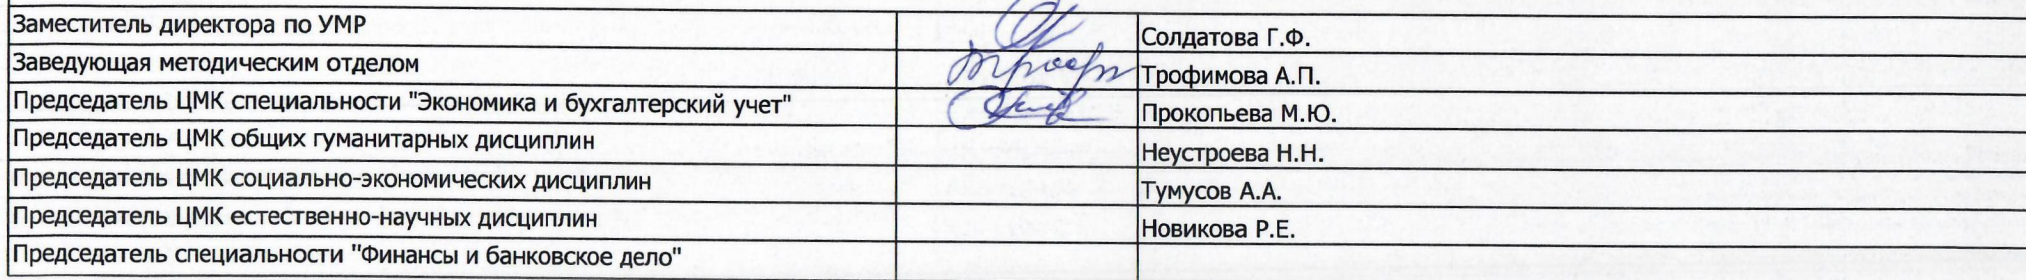 Заместитель директора по УМР Солдатова Г.Ф.
Заведующая методическим отделом Трофимова А.П.
Председатель ЦМК специальности "Экономика и бухгалтерский учет" Прокопьева М.Ю.
Председатель ЦМК общих гуманитарных дисциплин Неустроева Н.Н.
Председатель ЦМК социально-экономических дисциплин Тумусов А.А.
Председатель ЦМК естественно-научных дисциплин Новикова Р.Е.
Председатель специальности "Финансы и банковское дело"